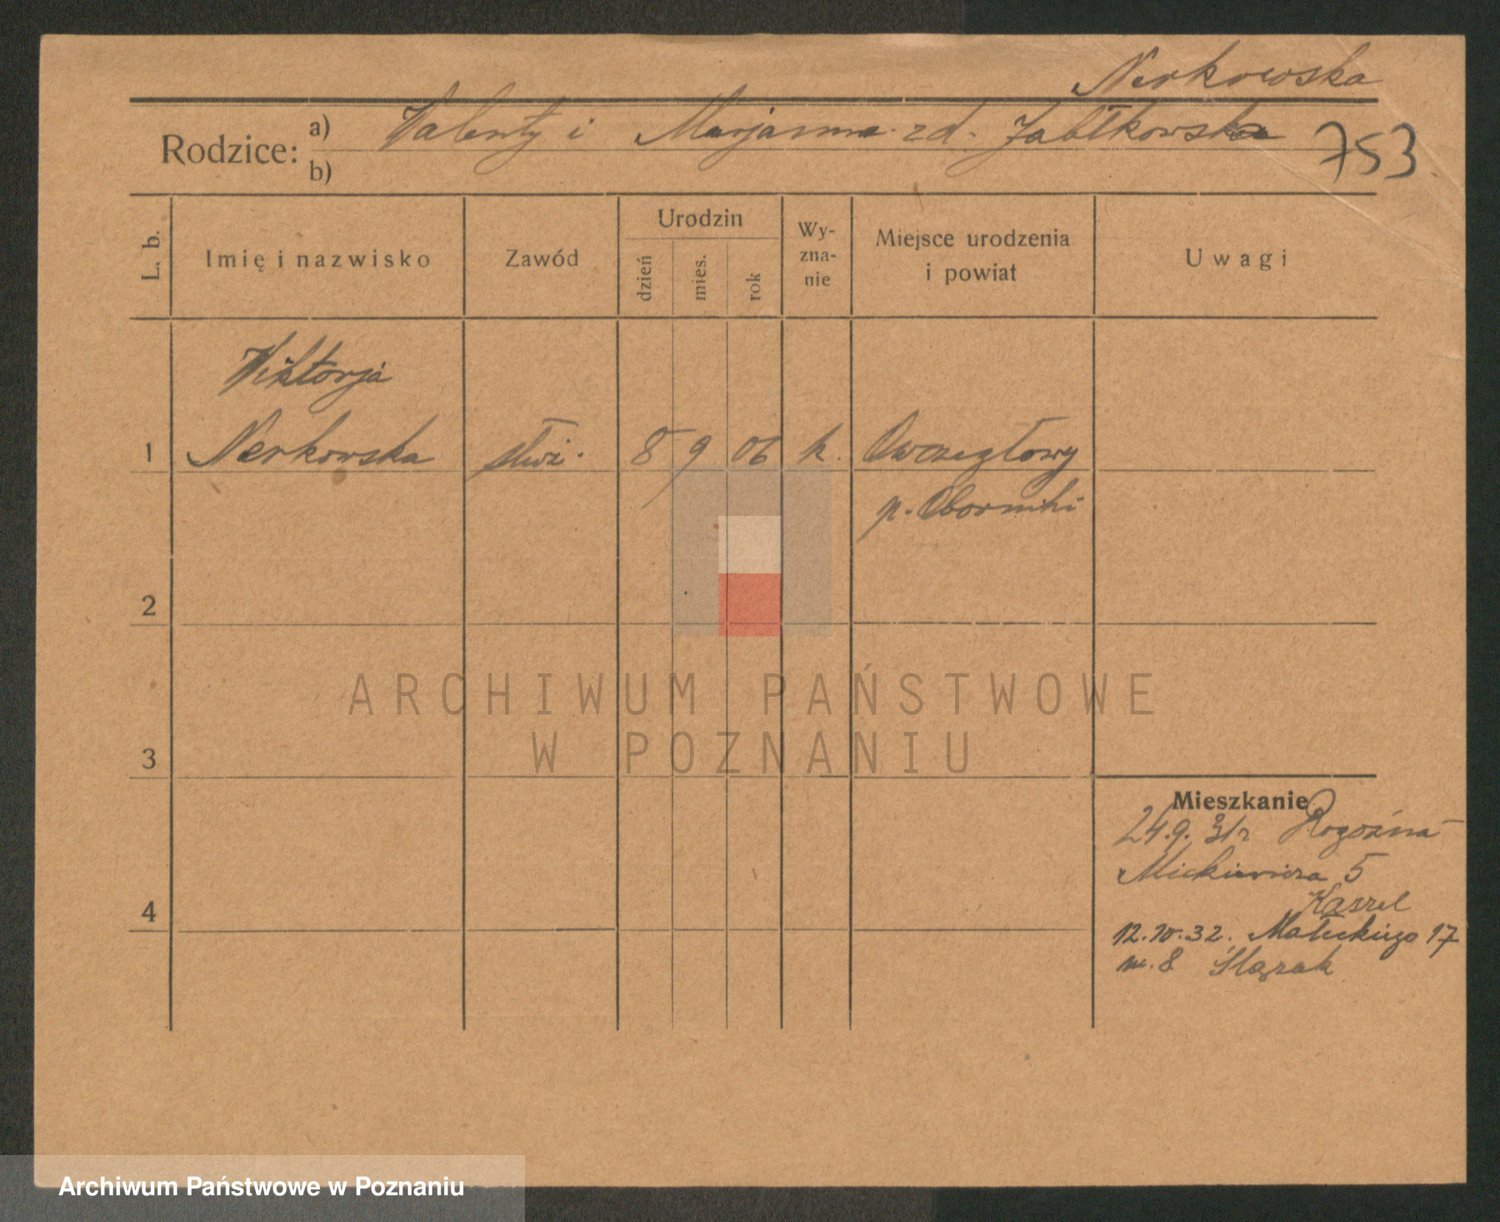 Nerkowska
Rodzice: a) Walenty i Marjanna zd. Jabłkowska
b)
753
L. b.
Imię i nazwisko
Zawód
Urodzin
dzień
mies.
rok
Wy-
zna-
nie
Miejsce urodzenia
i powiat
Uwagi
Wiktorja
1 Nerkowska służ. 8 9 06 k. Owczegłowy
p. Oborniki
2
3
4
Mieszkanie
24.9. 31r Rogoźna
Mickiewicza 5
Kaszel
12.10.32. Małeckiego 17
m. 8 Ślązak
ARCHIWUM PAŃSTWOWE
W POZNANIU
Archiwum Państwowe w Poznaniu